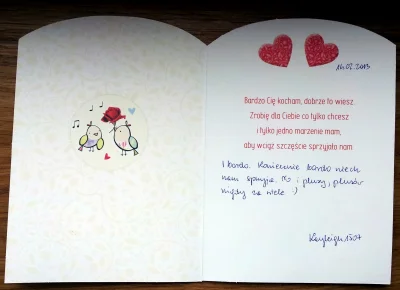 14.02.2013
Bardzo Cię kocham, dobrze to wiesz
Zrobię dla Ciebie co tylko chcesz
i tylko jedno marzenie mam,
aby wciąż szczęście sprzyjało nam
I bardzo. Koniecznie bardzo niech
nam sprzyja. i plusy, plusów
nigdy za wiele :)
Kayleigh1507